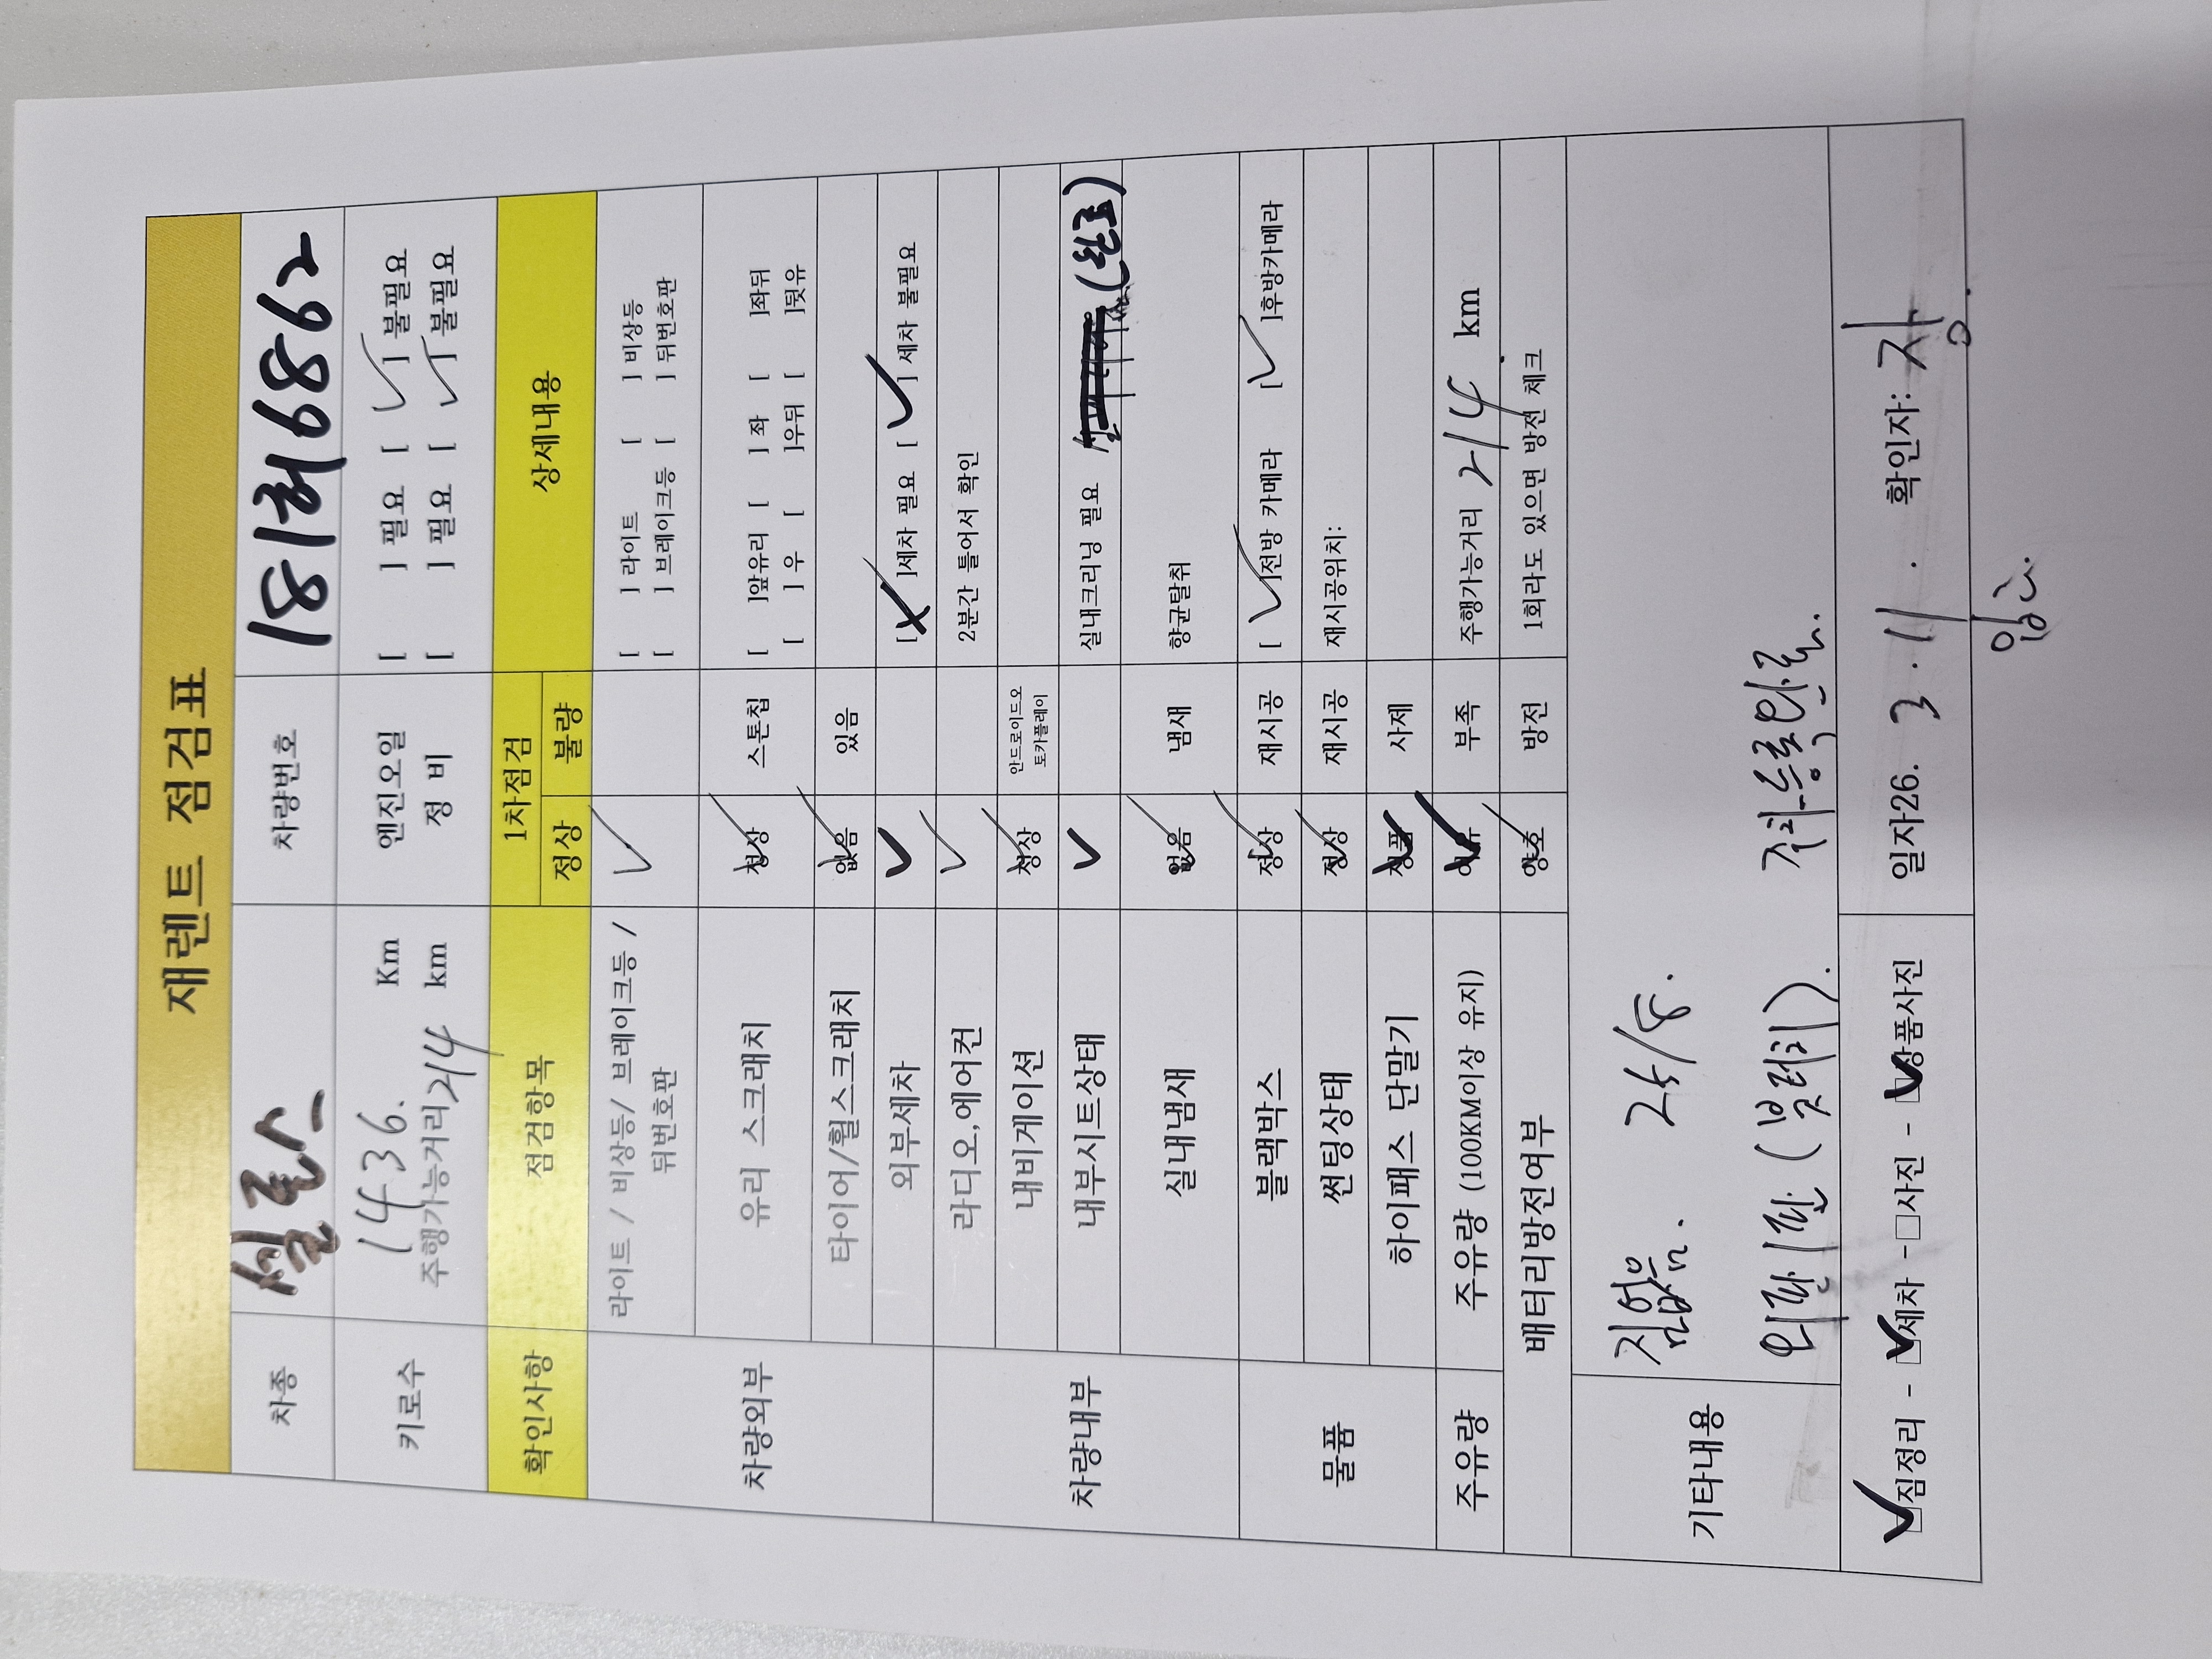 재렌트 점검표
차종 셀토스 차량번호 181허6862
키로수 1436. Km 엔진오일 [ ] 필요 [ ✓ ] 불필요
주행가능거리 214 km 정 비 [ ] 필요 [ ✓ ] 불필요
확인사항 점검항목 1차점검 상세내용
정상 불량
차량외부 라이트 / 비상등/ 브레이크등 / ✓ [ ] 라이트 [ ] 비상등
뒤번호판 [ ] 브레이크등 [ ] 뒤번호판
유리 스크래치 정상 스톤칩 [ ]앞유리 [ ] 좌 [ ]좌뒤
[ ] 우 [ ]우뒤 [ ]뒷유
타이어/휠스크래치 없음 있음
외부세차 ✓ [ ]세차 필요 [ ✓ ] 세차 불필요
차량내부 라디오,에어컨 ✓ 2분간 틀어서 확인
내비게이션 정상 안드로이드오
토카플레이
내부시트상태 ✓ 실내크리닝 필요 (완료)
실내냄새 없음 냄새 향균탈취
물품 블랙박스 정상 재시공 [ ✓ ]전방 카메라 [ ✓ ]후방카메라
썬팅상태 정상 재시공 재시공위치:
하이패스 단말기 정품 사제
주유량 주유량 (100KM이상 유지) 여유 부족 주행가능거리 214 km
배터리방전여부 양호 방전 1회라도 있으면 방전 체크
기타내용 짐없음. 25/8.
외관 1판 (빛테리). 최초등록완료.
✓짐정리 - ✓세차 - □사진 - ✓상품사진 일자26. 3 . 11 . 확인자: